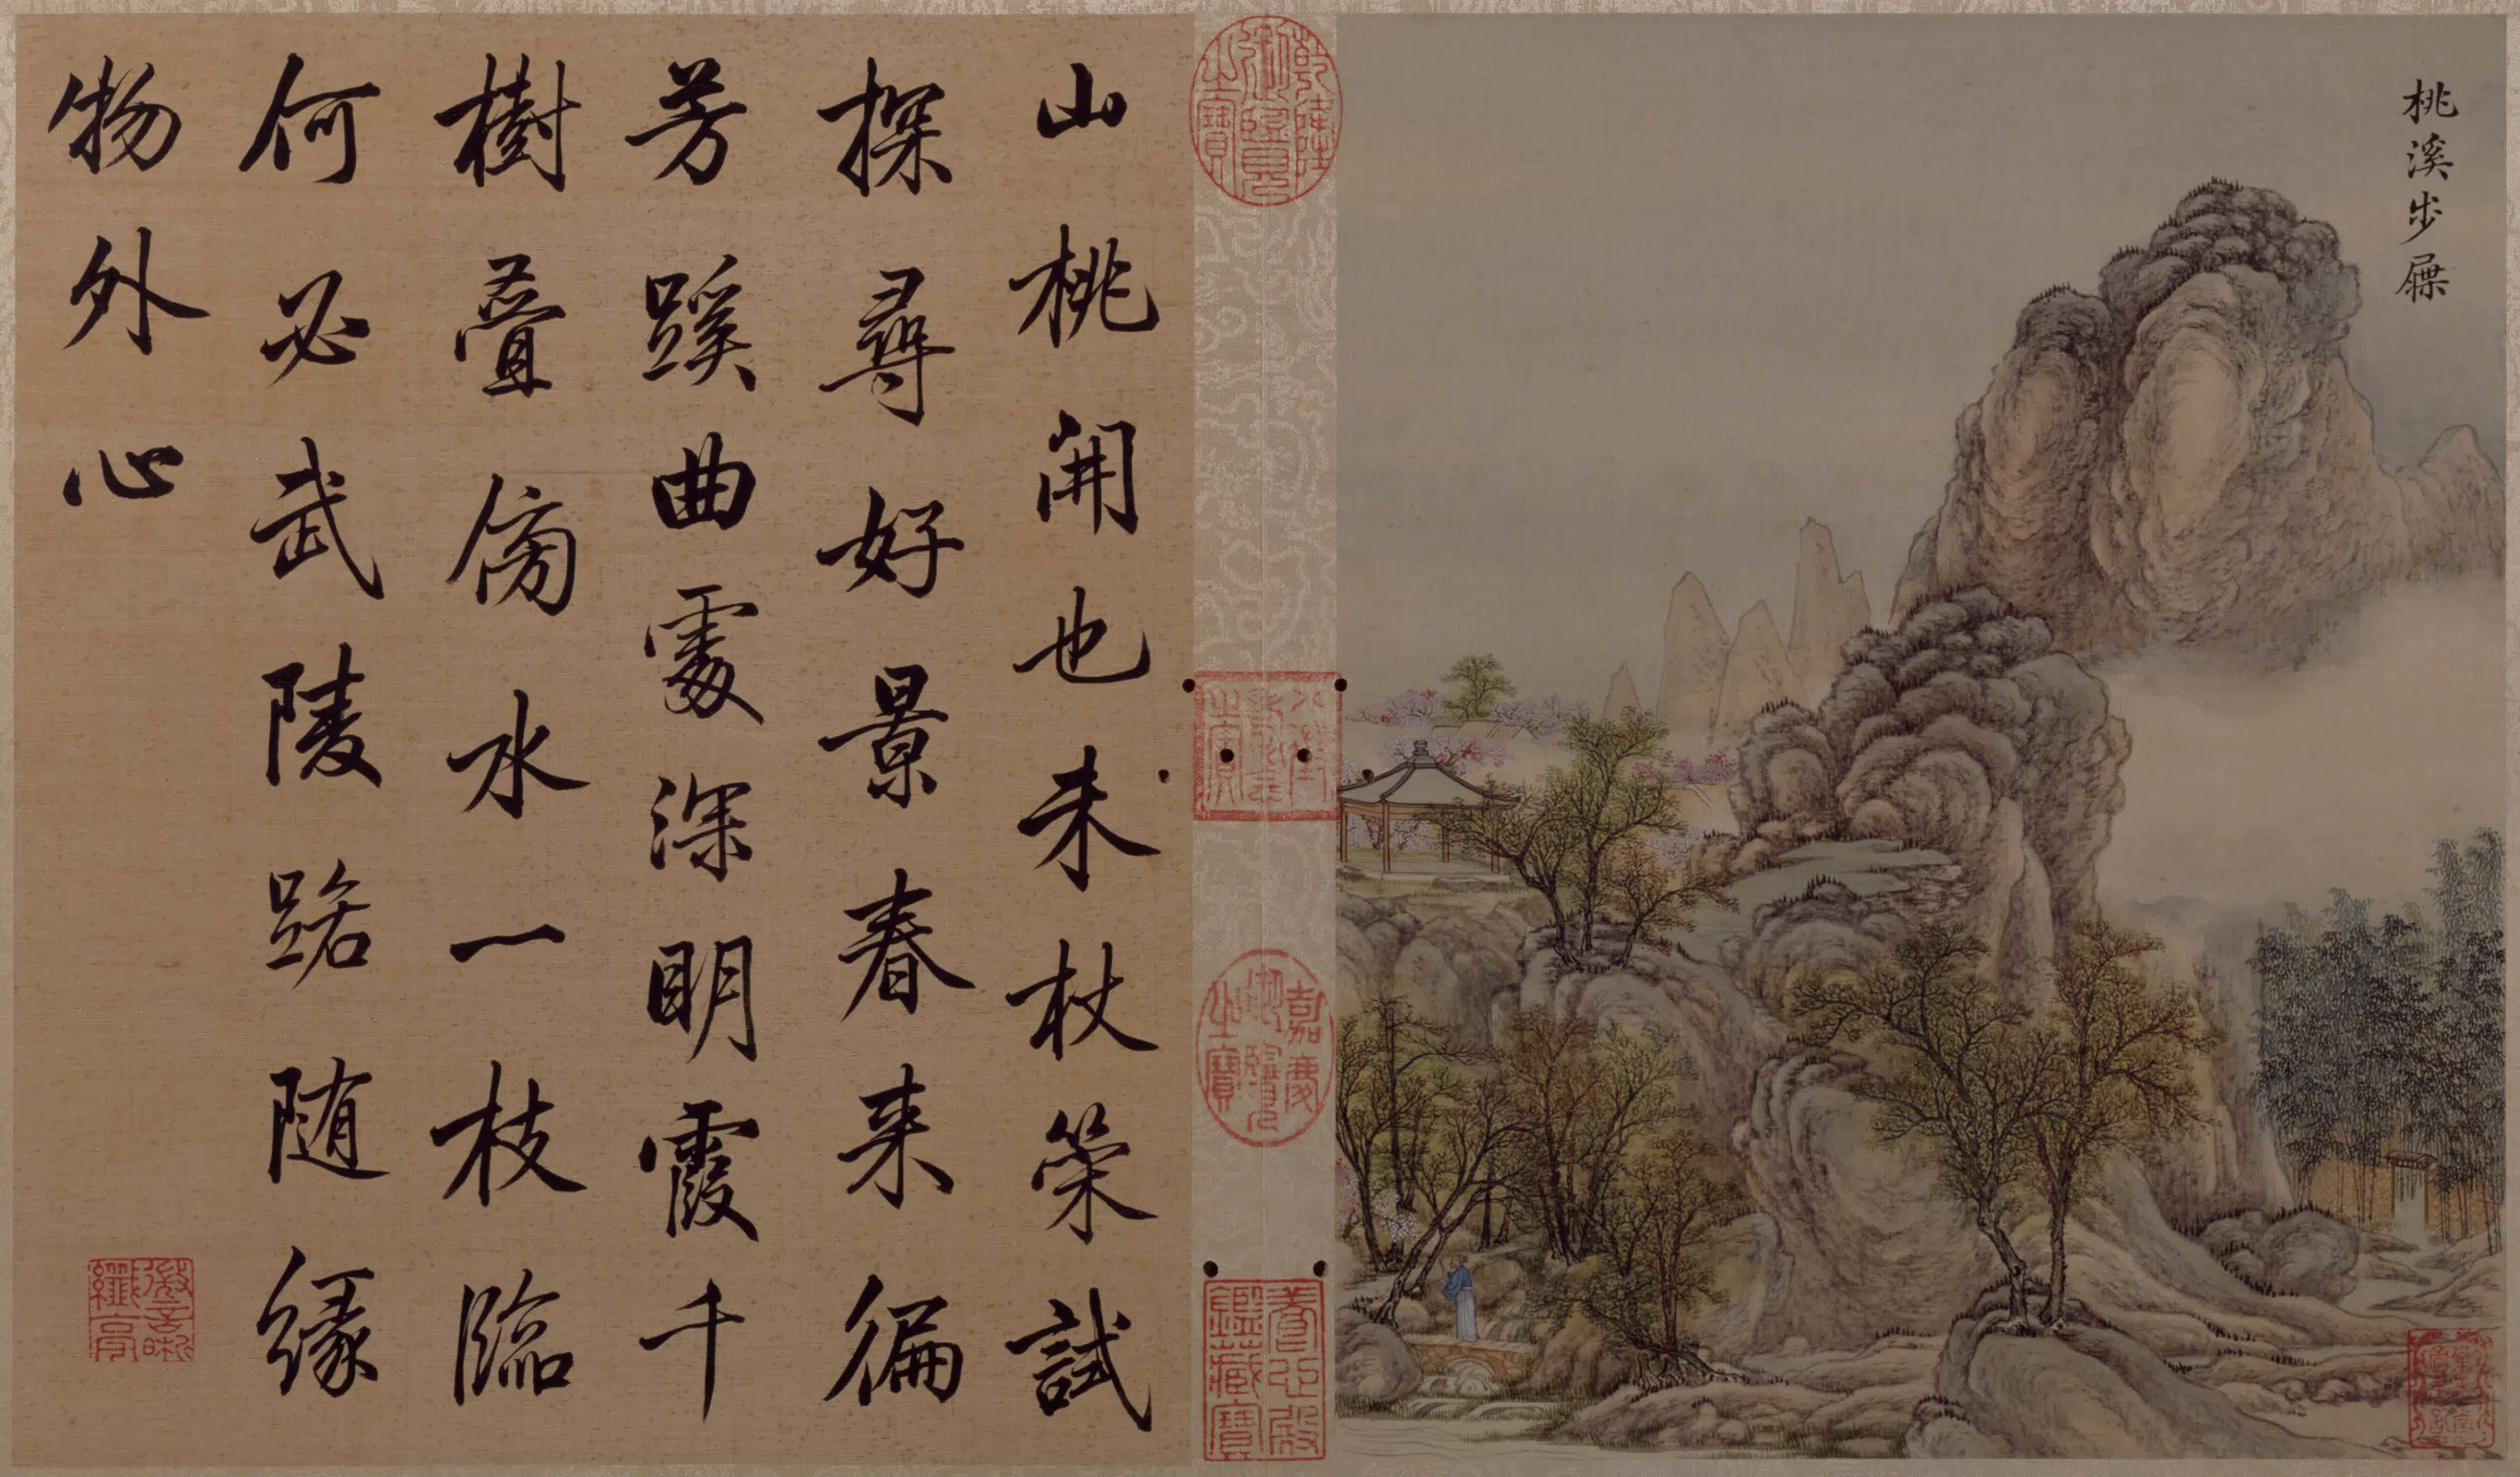 桃溪步屧
乾隆御覽之寶
八徵耄念之寶
嘉慶御覽之寶
養心殿鑑藏寶
山桃開也未杖策試
探尋好景春来徧
芳蹊曲處深明霞千
樹疊傍水一枝臨
何必武陵路随縁
物外心